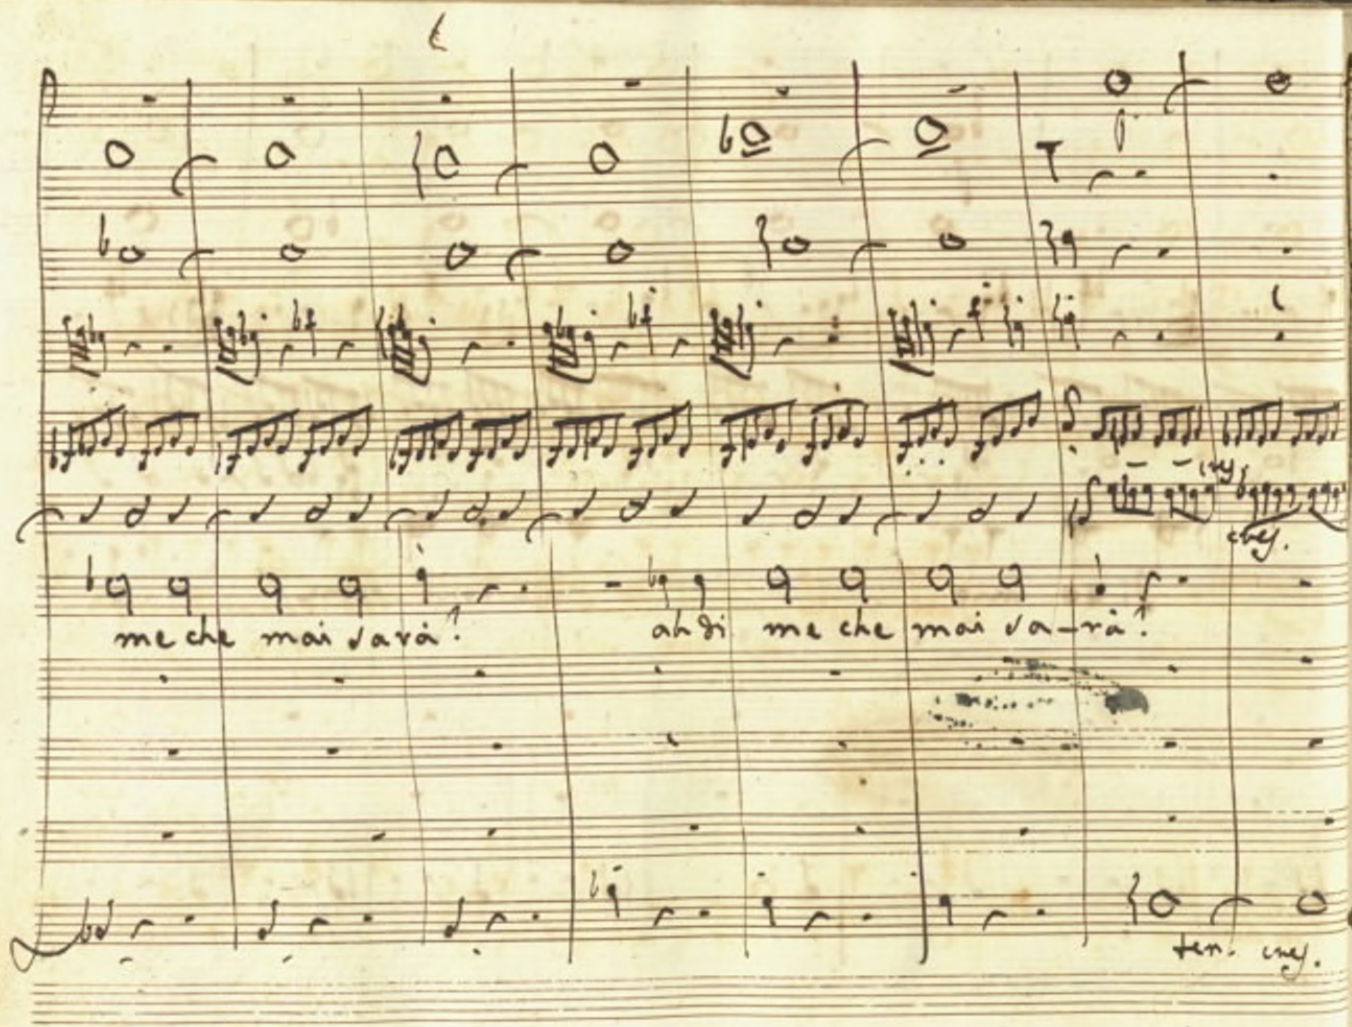 cres.
cres.
me che mai sarà? ah di me che mai sa-rà?
ten. cres.